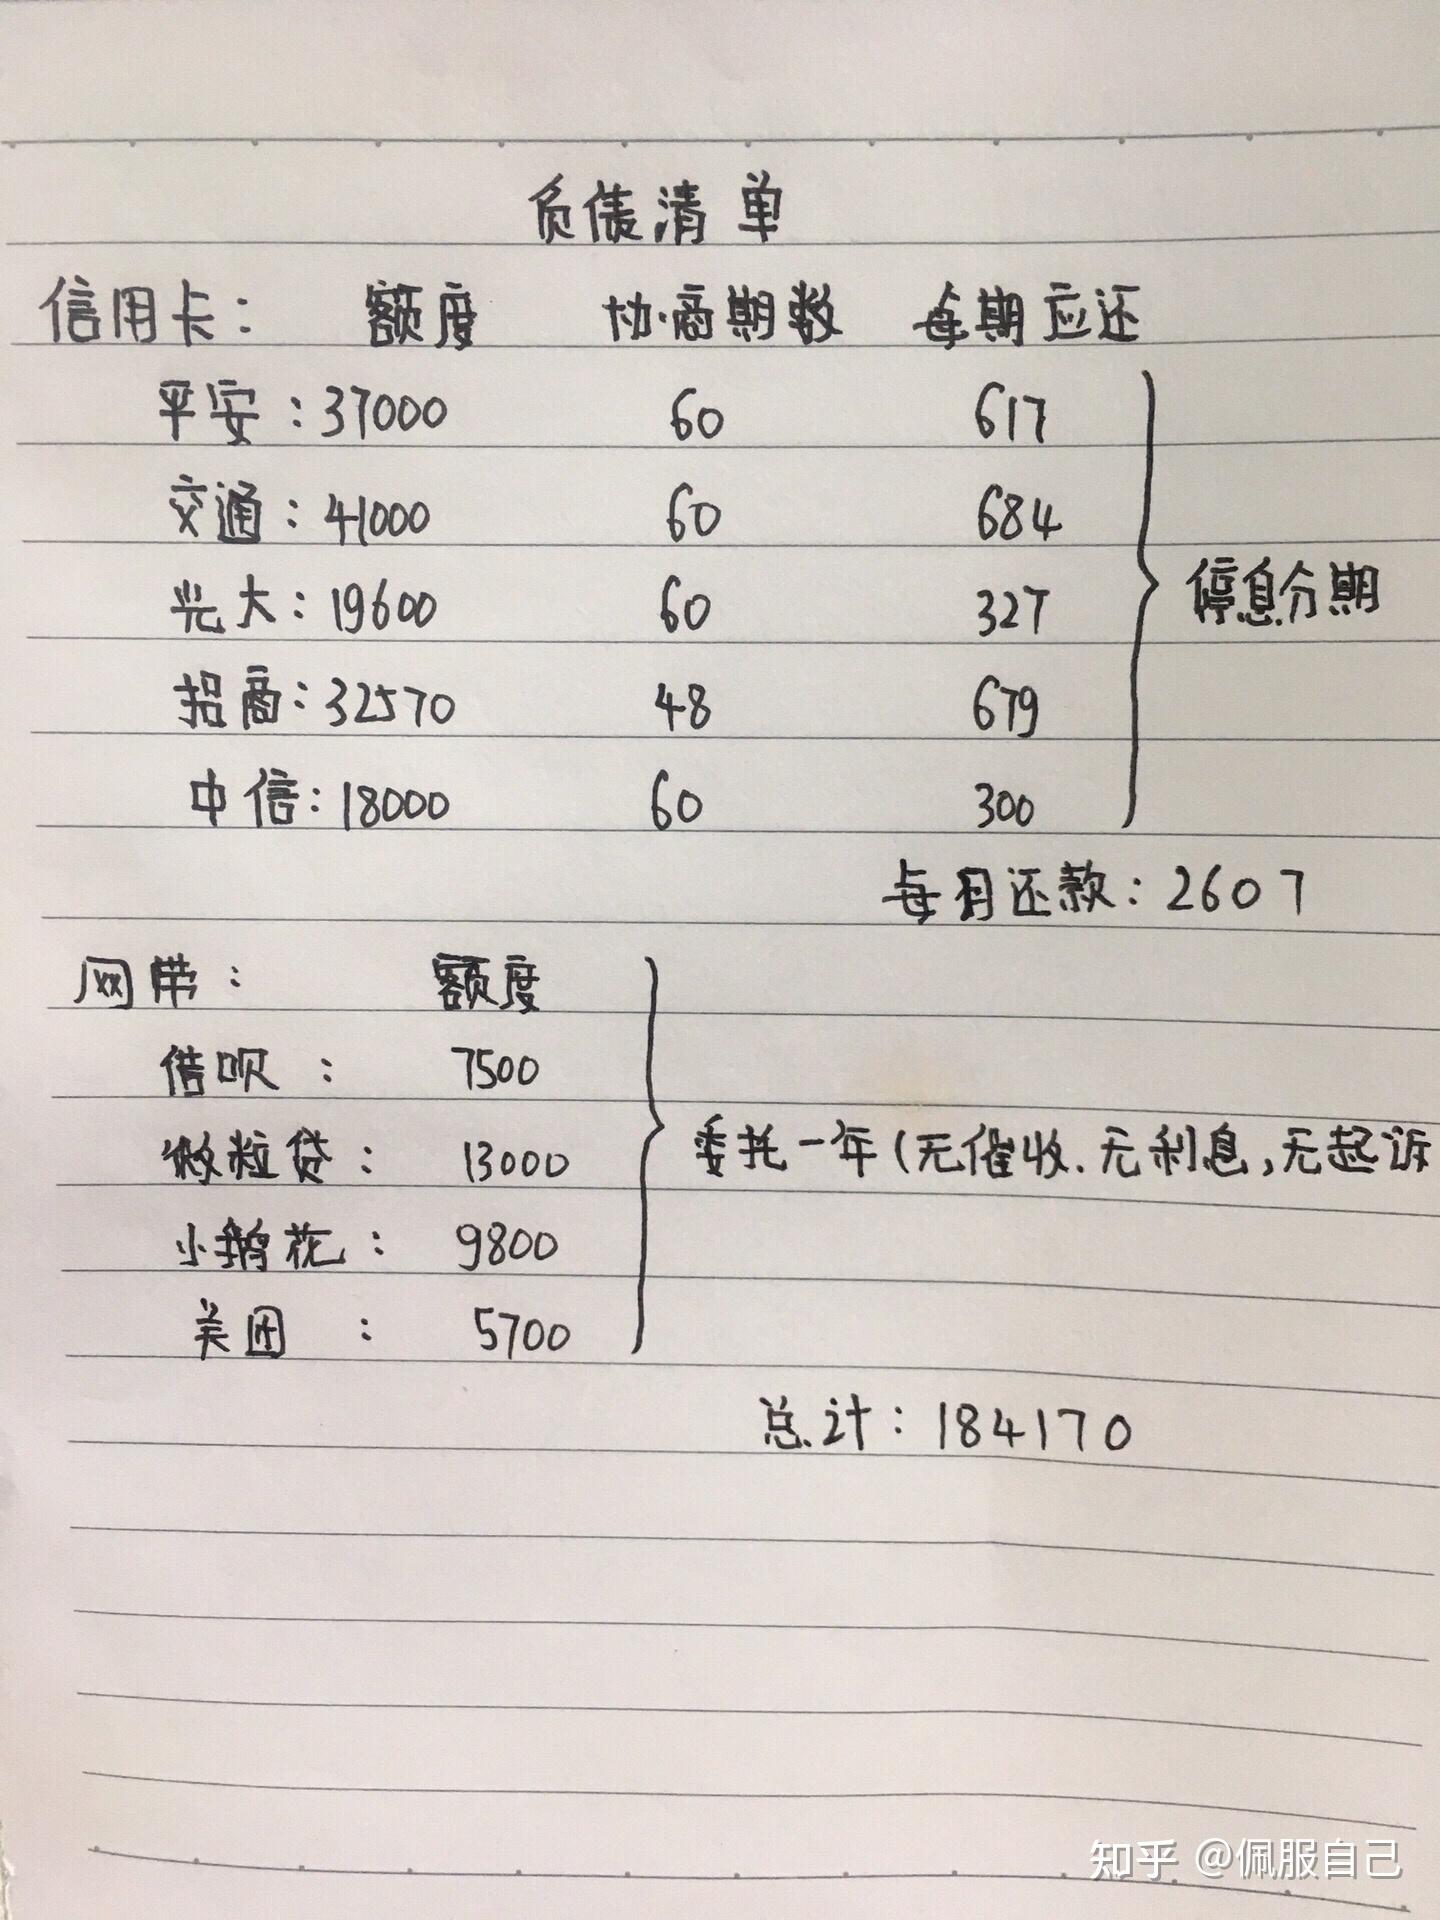 负债清单
信用卡： 额度 协商期数 每期应还
平安：37000 60 617
交通：41000 60 684
光大：19600 60 327
停息分期
招商：32570 48 679
中信：18000 60 300
每月还款：2607
网贷： 额度
借呗： 7500
微粒贷： 13000
委托一年(无催收.无利息,无起诉
小鹅花： 9800
美团： 5700
总计：184170
知乎 @佩服自己